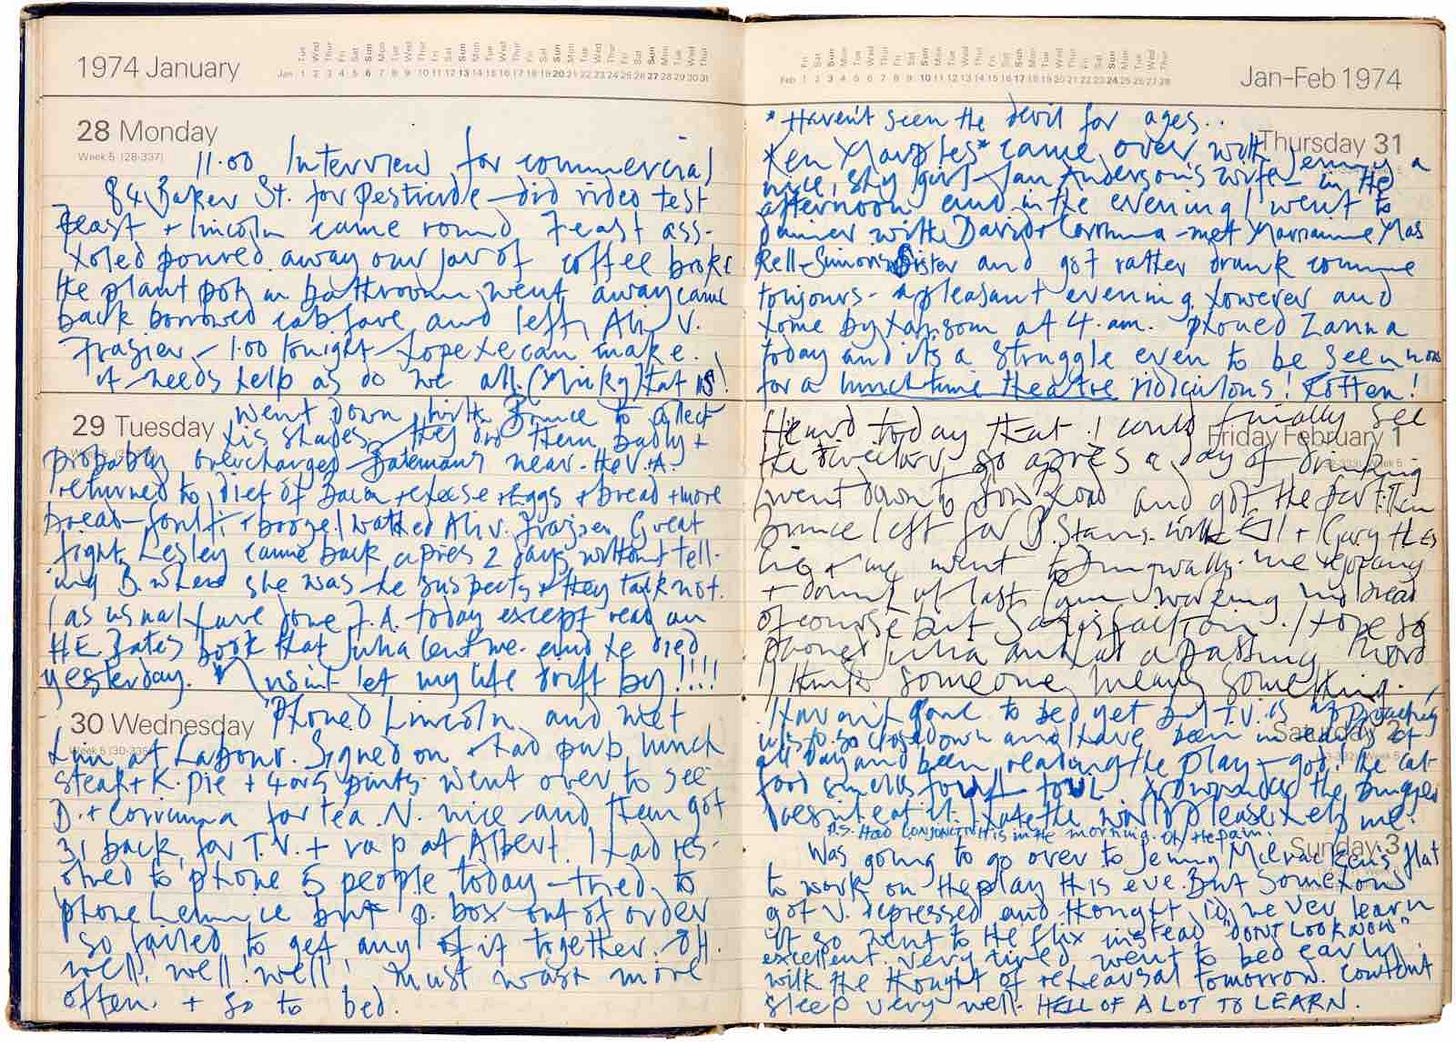 1974 January
28 Monday
Week 5 (28-337)
11.00 Interview for commercial
84 Baker St. for Pesticide – did video test
Feast + Lincoln came round Feast ass-
holed poured away our jar of coffee broke
the plant pot in bathroom went away came
back borrowed cab fare and left. Ali V.
Frazier – 1.00 tonight – hope he can make.
it needs help as do we all. that is!
29 Tuesday
went down with Bruce to collect
his shades – they did them badly +
probably overcharged – Batemans near the V.A.
returned to diet of bacon + cheese + eggs + bread + more
bread – + booze! watched Ali v. Frazier. Great
fight. Lesley came back apres 2 days without tell-
ing B. where she was – he suspects + they talk not.
I as usual have done F.A. today except read an
HE Bates book that Julia lent me – and he died
yesterday. Musnt let my life drift by!!!!
30 Wednesday
Phoned Lincoln and met
him at Labour. Signed on + had pub lunch
steak + K. pie + 4 or 5 pints. went over to see
D. + Corrinna for tea. N. nice – and then got
31 back for T.V. + rap at Albert. I had res-
olved to phone 5 people today – tried to
phone but p. box out of order
so failed to get any of it together. Oh
well! well! well! Must wash more
often. + so to bed.
Jan-Feb 1974
* Haven't seen the devil for ages..
Thursday 31
Ken Marples* came over with Jenny a
nice, shy girl – Ian Anderson's wife – in the
afternoon and in the evening I went to
dinner with David + Corrinna – met Marrianne Mas
Rell – Simons Sister and got rather drunk comme
toujours – a pleasant evening however and
home by hansom at 4 am. Phoned Zanna
today and its a struggle even to be seen now
for a lunchtime theatre ridiculous! Rotten!
Friday February 1
Heard today that I could finally see
the director, so apres a day of drinking
I went down to Row and got the part. Then
Bruce left for B. Stairs with + Gary then
Liz + me went to Dingwalls. me
+ down at last. making my bread
of course but Satisfaction. I hope so
phoned Julia and at a passing word
I think someone means something.
Saturday 2
I havn't gone to bed yet but T.V. is approaching
its so closedown and I have been in
all day and been reading the play – got the cat-
food smells foul foul no wonder the bugger
doesnt eat it. I hate the world please help me!
P.S. Had CONJUNCTIVITIS in the morning. Oh the pain.
Sunday 3
Was going to go over to Jenny McCrackens flat
to work on the play this eve. But somehow
got v. depressed and thought Id never learn
it so went to the flix instead "DON'T LOOK NOW"
excellent. Very tired, went to bed early
with the thought of rehearsal tomorrow. couldnt
sleep very well. HELL OF A LOT TO LEARN.